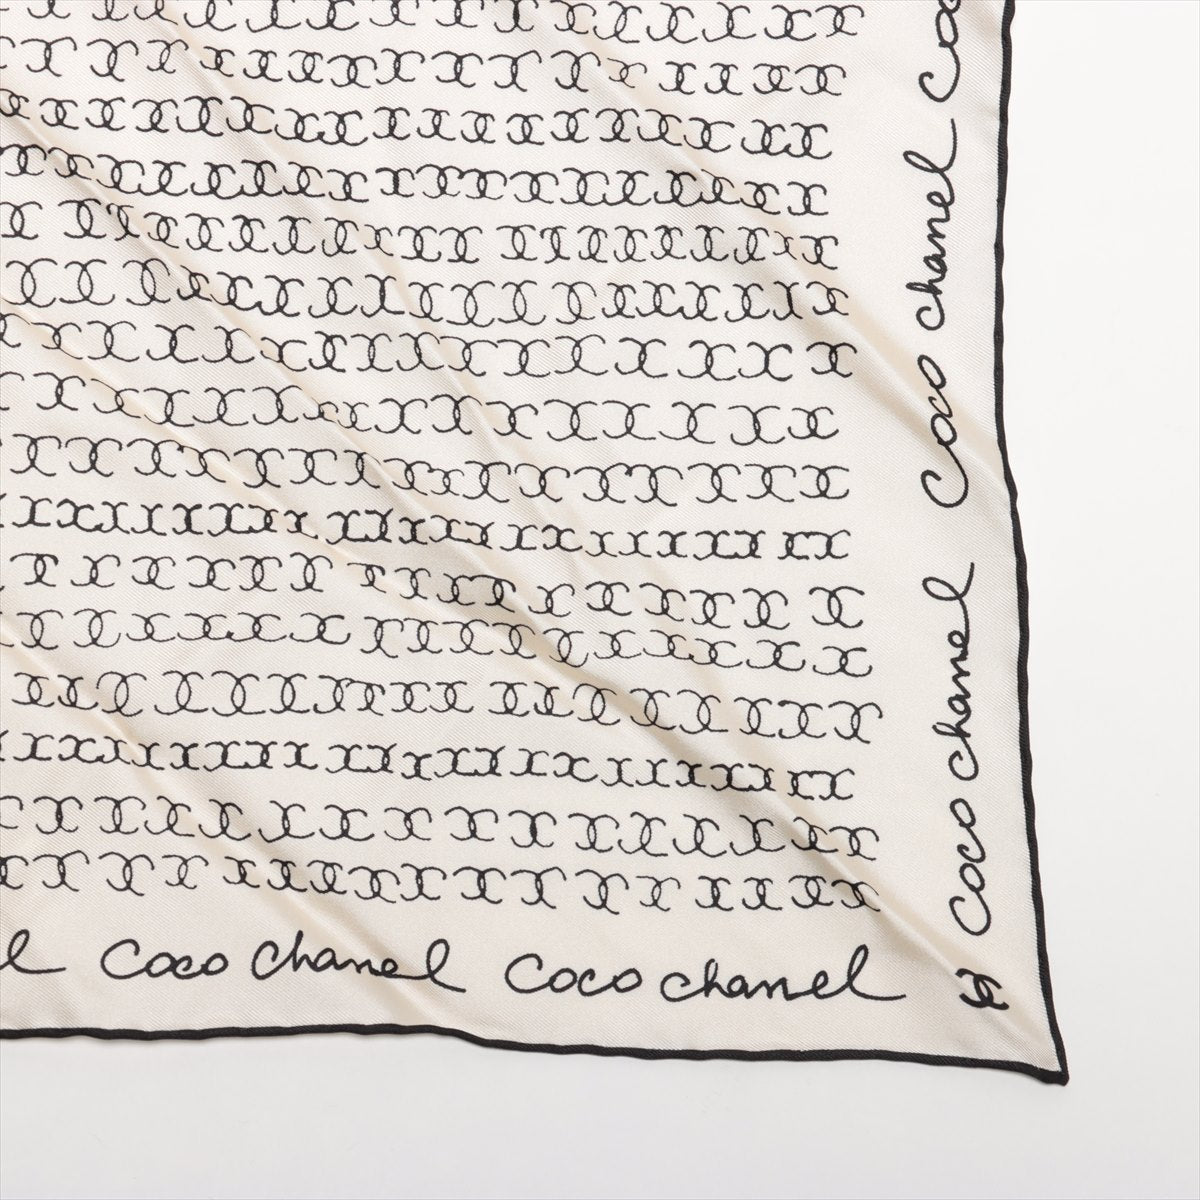 l Coco chanel Coco chanel
Coco chanel Coco chanel Co